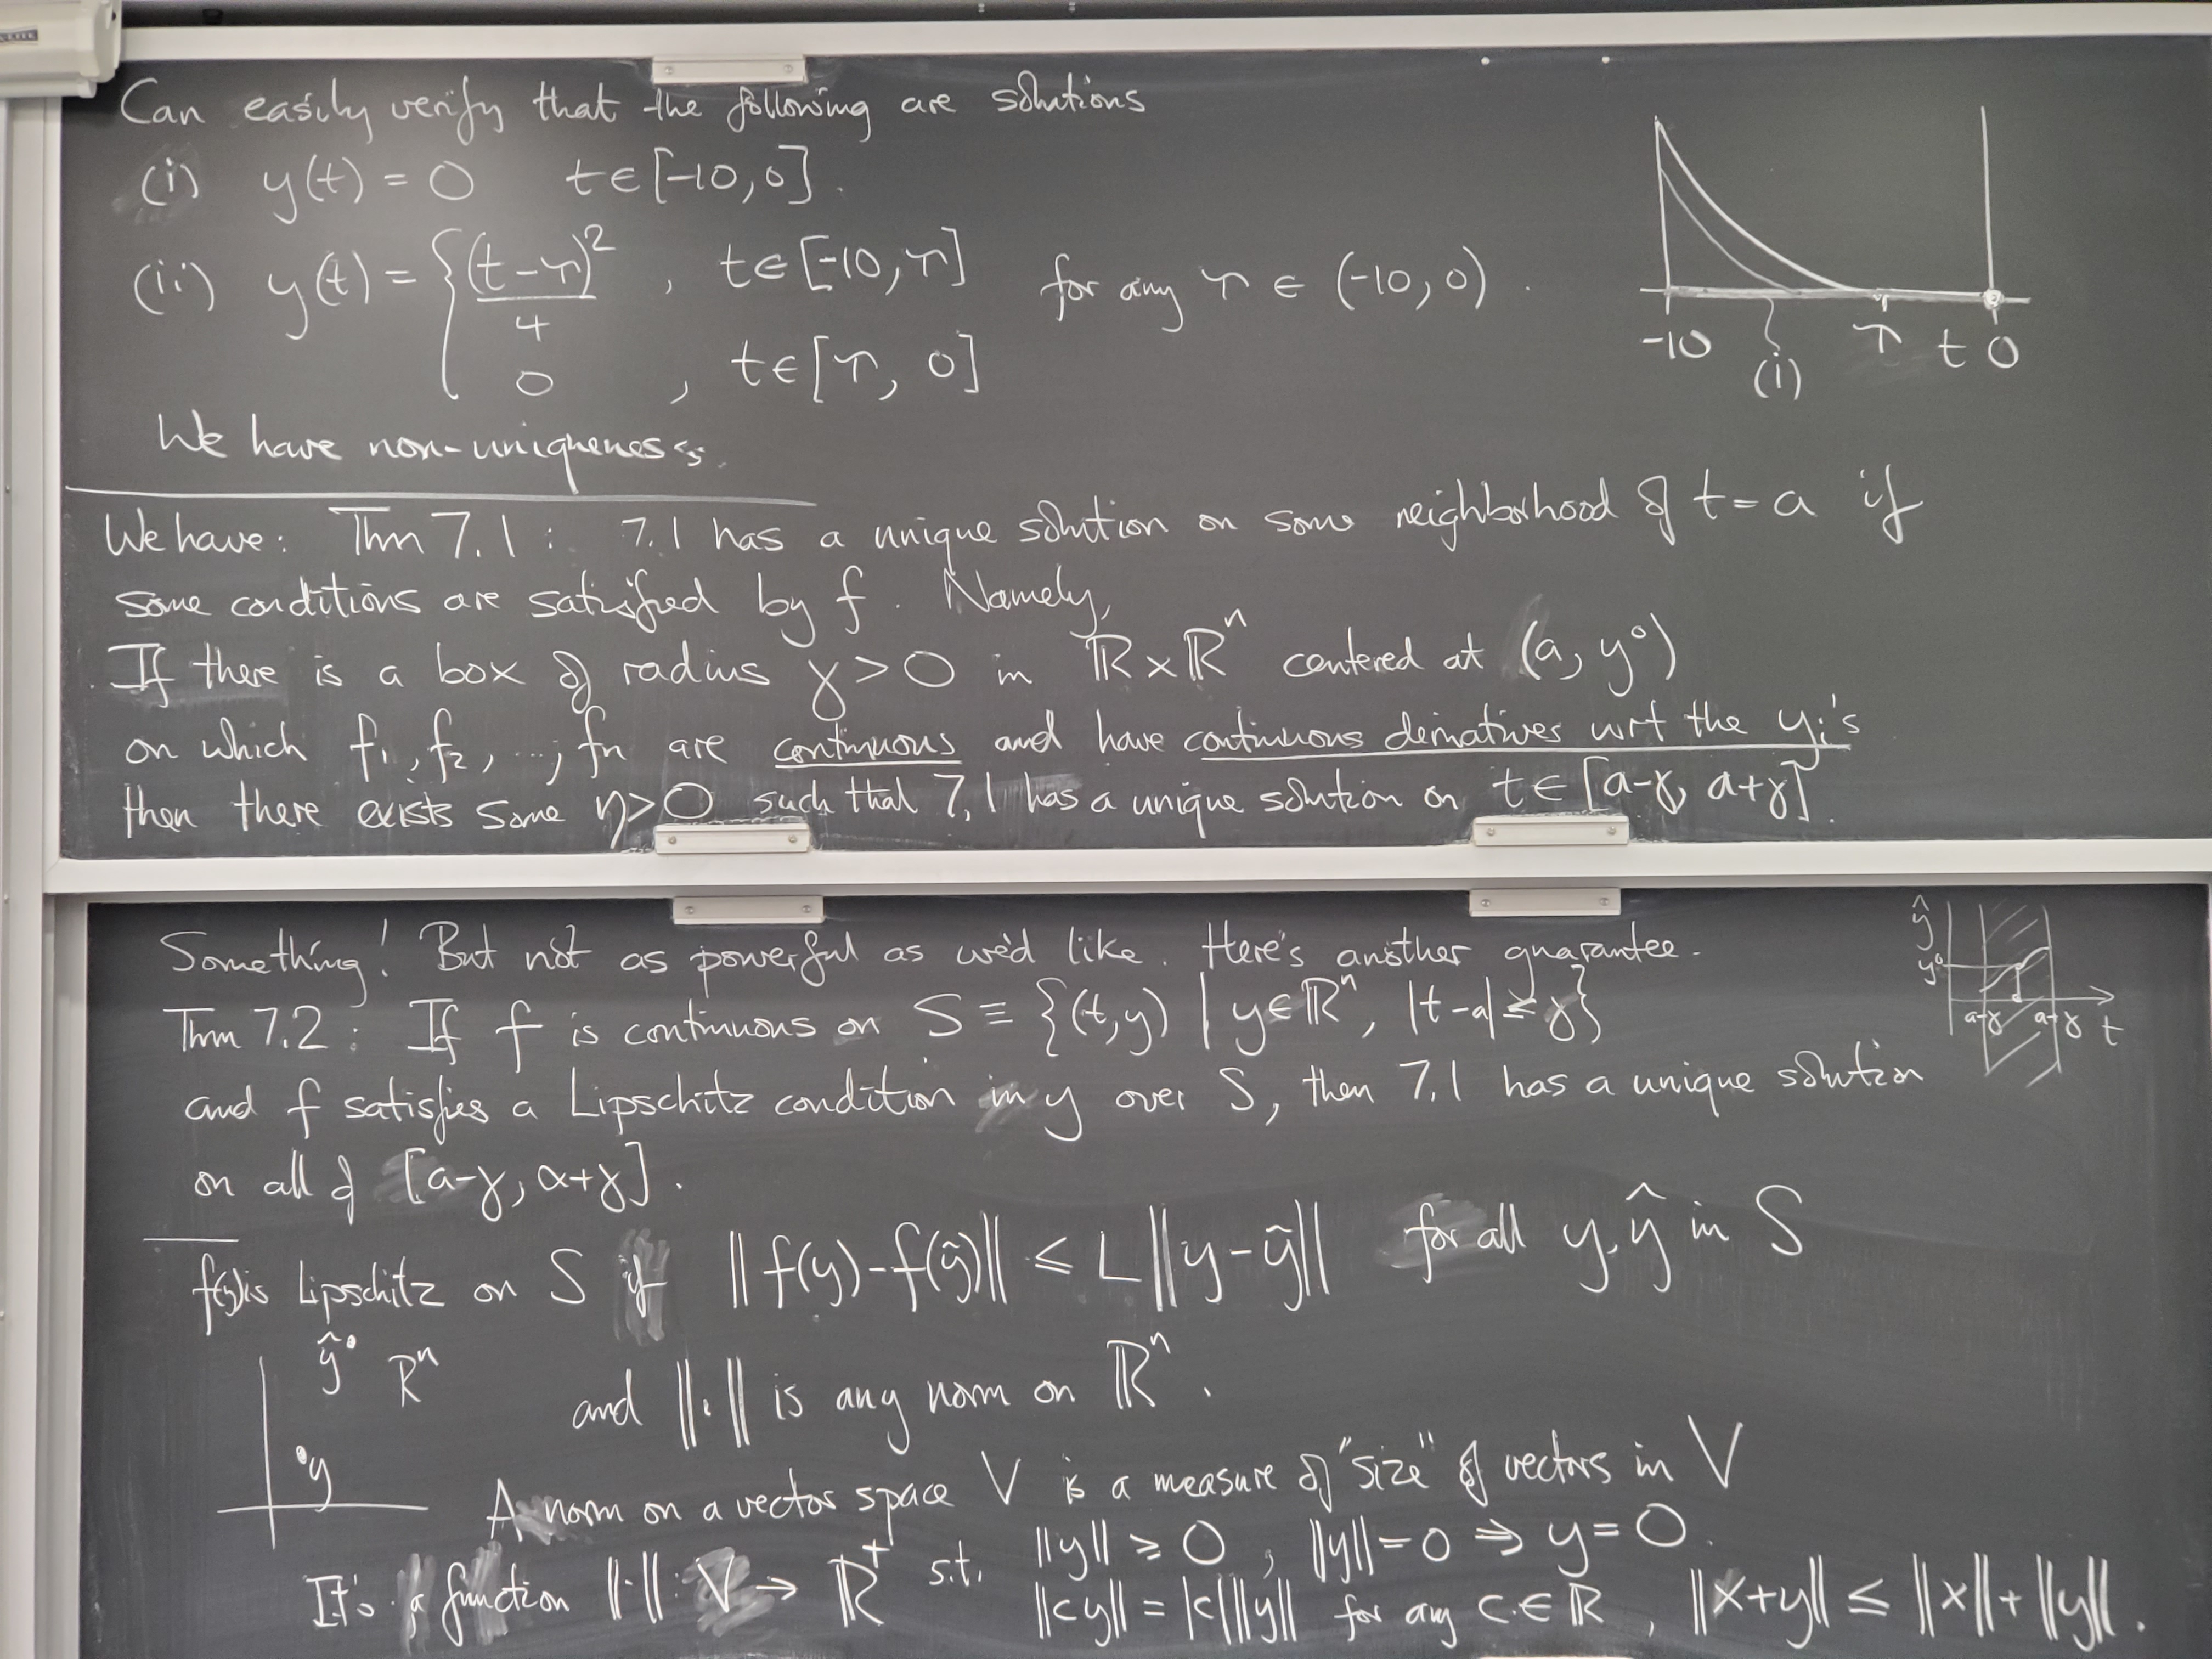 Can easily verify that the following are solutions
(i) y(t) = 0 t∈[-10,0].
(ii) y(t) = { (t-τ)²/4 , t∈[-10,τ] for any τ ∈ (-10,0).
0 , t∈[τ, 0]
-10 (i) τ t 0
We have non-uniqueness.
We have: Thm 7.1 : 7.1 has a unique solution on some neighborhood of t=a if
some conditions are satisfied by f. Namely,
If there is a box of radius γ>0 in ℝ×ℝⁿ centered at (a, y⁰)
on which f₁, f₂, ..., fn are continuous and have continuous derivatives wrt the yᵢ's
then there exists some η>0 such that 7.1 has a unique solution on t∈[a-γ, a+γ].
Something! But not as powerful as we'd like. Here's another guarantee.
ŷ y⁰ a-γ a+γ t
Thm 7.2 : If f is continuous on S ≡ {(t,y) | y∈ℝⁿ, |t-a| ≤ γ}
and f satisfies a Lipschitz condition in y over S, then 7.1 has a unique solution
on all of [a-γ, a+γ].
f(y) is Lipschitz on S if ‖f(y)-f(ŷ)‖ ≤ L‖y-ŷ‖ for all y, ŷ in S
ŷ ℝⁿ
and ‖·‖ is any norm on ℝⁿ.
y
A norm on a vector space V is a measure of "size" of vectors in V
It's a function ‖·‖: V → ℝ⁺ s.t. ‖y‖ ≥ 0 , ‖y‖=0 ⇒ y=0.
‖cy‖ = |c|‖y‖ for any c∈ℝ , ‖x+y‖ ≤ ‖x‖+‖y‖.